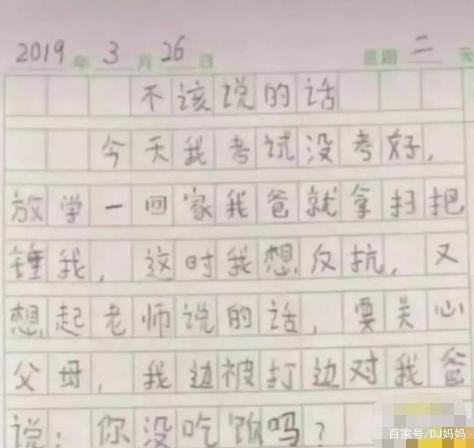 2019年3月26日 星期二 天
不该说的话
今天我考试没考好,
放学一回家我爸就拿扫把
锤我,这时我想反抗,又
想起老师说的话,要关心
父母,我边被打边对我爸
说:你没吃饭吗?
百家号/DJ妈妈